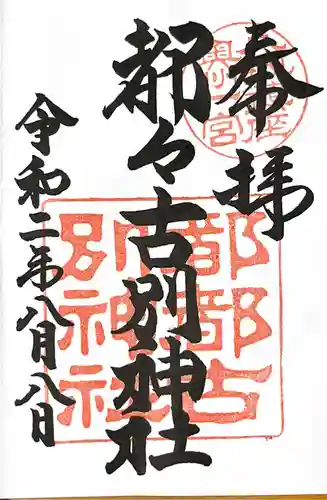 奉拝
都々古別神社
令和二年八月八日
都都古
別神社